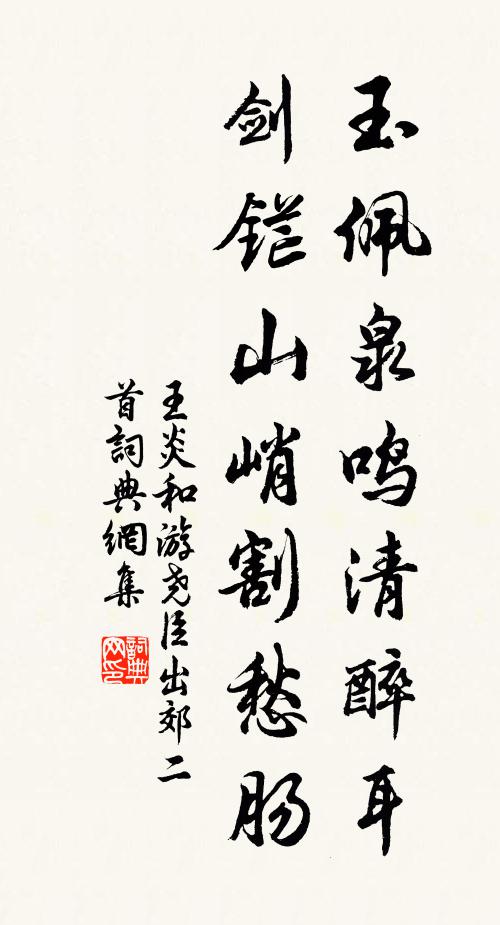 玉佩泉鸣清醉耳
剑铓山峭割愁肠
王炎和游尧臣出郊二
首詞典網集
詞典
网印